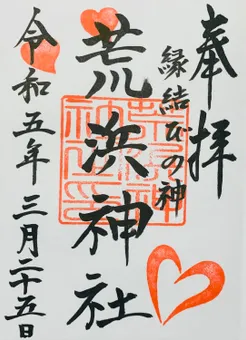 奉拝
縁結びの神
荒浜神社
令和五年三月二十五日